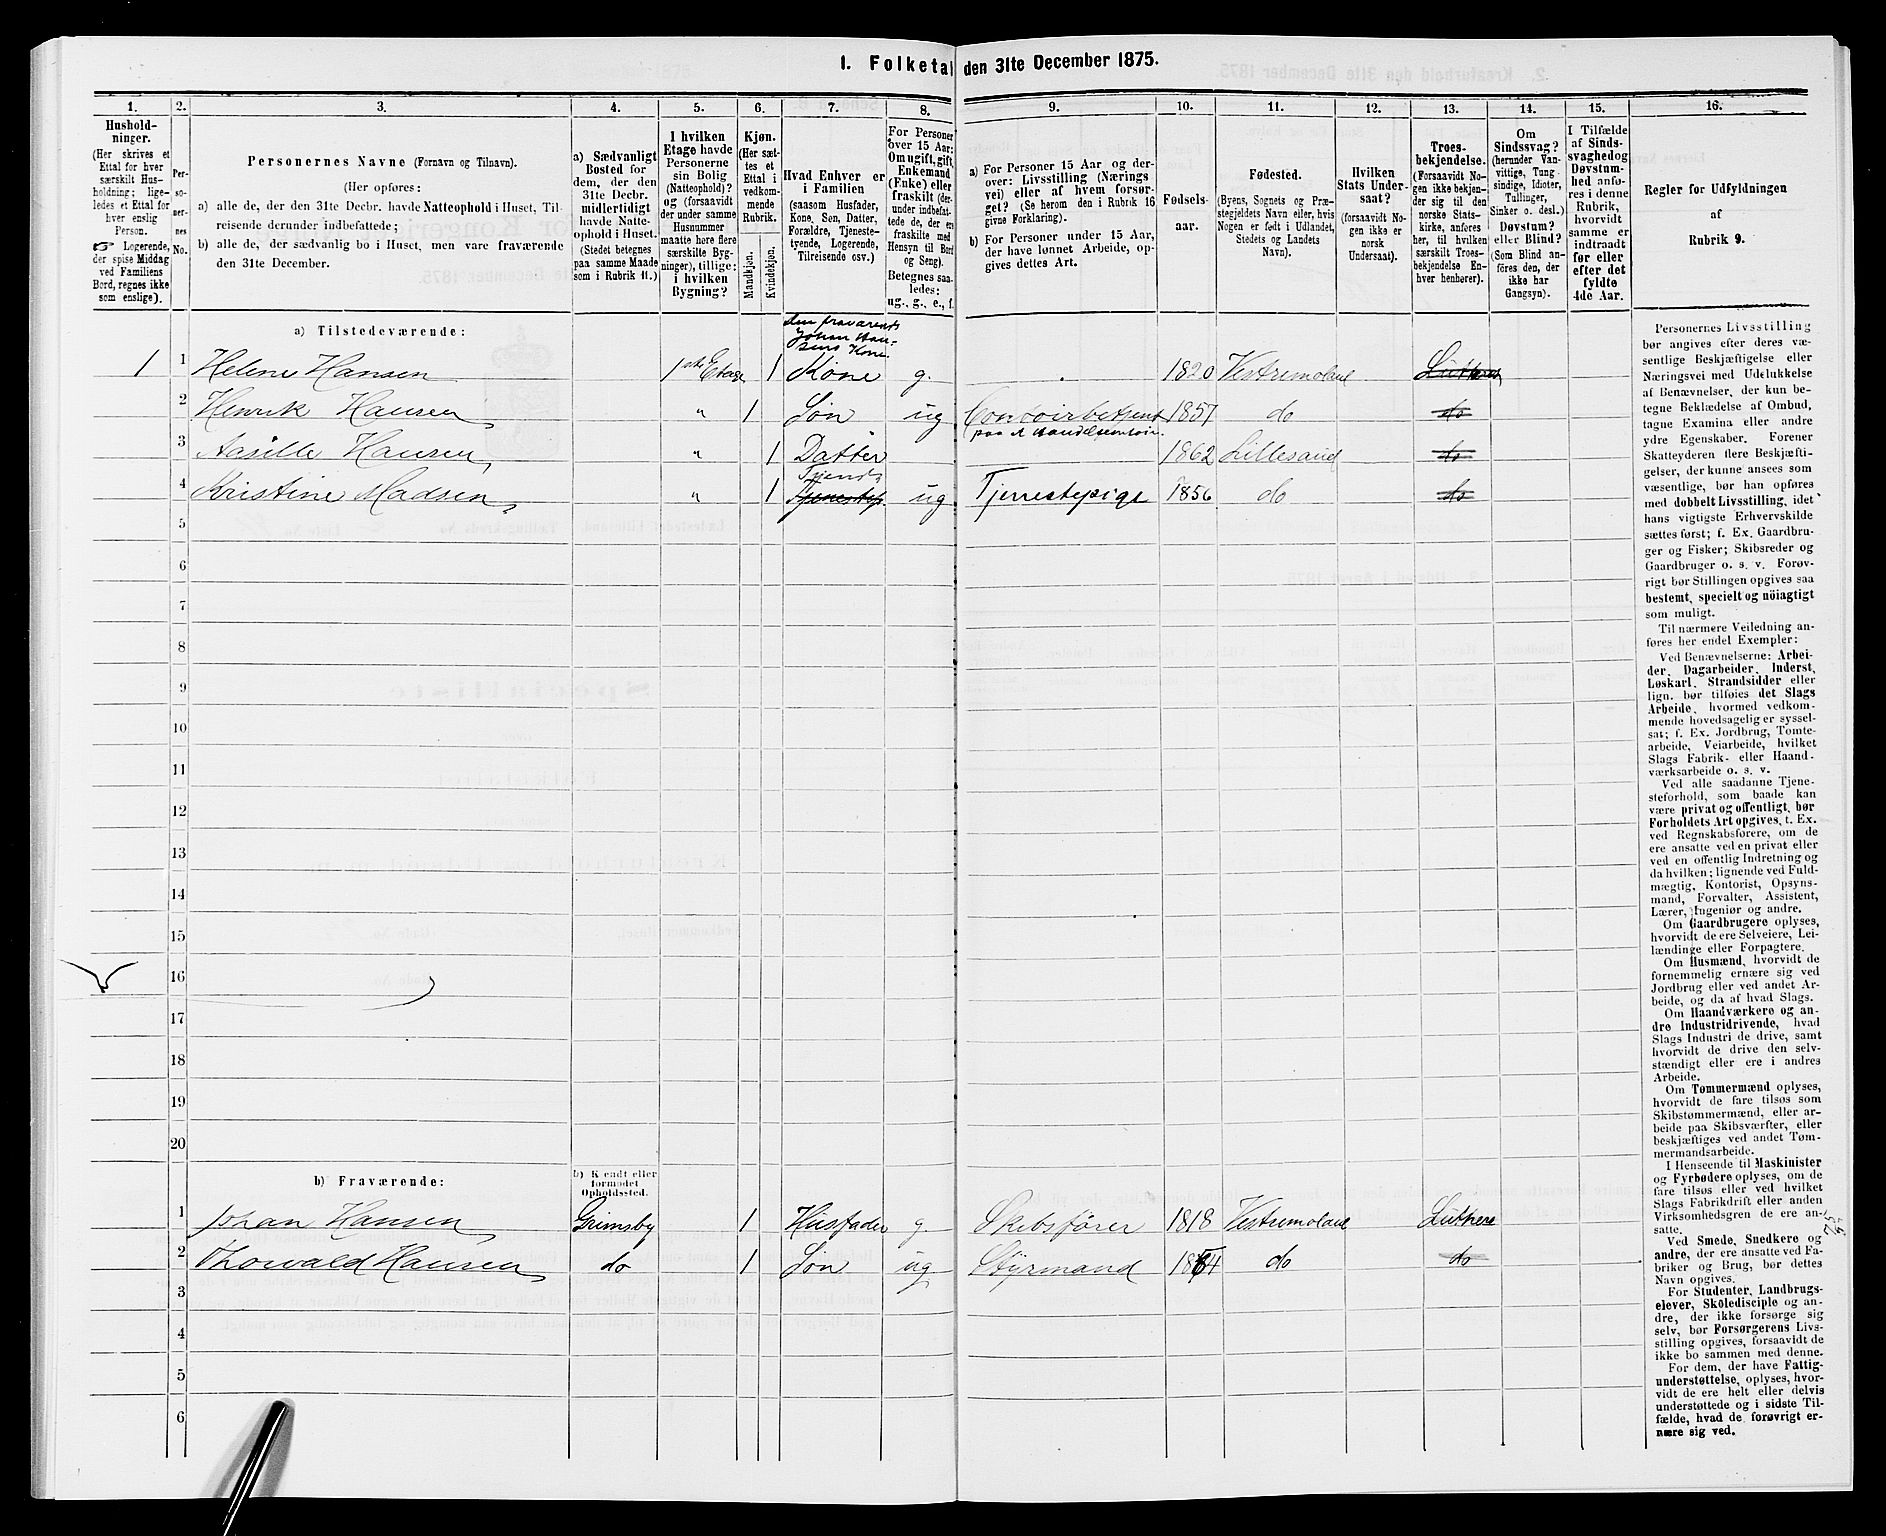 1. Folketal den 31te December 1875.
1. 2. 3. 4. 5. 6. 7. 8. 9. 10. 11. 12. 13. 14. 15. 16.
Hushold-
ninger.
(Her skrives et
Ettal for hver
særskilt Hus-
holdning; lige-
ledes et Ettal for
hver enslig
Person.
☞ Logerende,
der spise Middag
ved Familiens
Bord, regnes ikke
som enslige).
Per-
so-
ner-
nes
No.
Personernes Navne (Fornavn og Tilnavn).
(Her opføres:
a) alle de, der den 31te Decbr. havde Natteophold i Huset, Til-
reisende derunder indbefattede;
b) alle de, der sædvanlig bo i Huset, men vare fraværende
den 31te December.
a) Sædvanligt
Bosted for
dem, der den
31te Decbr.
midlertidigt
havde Natte-
ophold i Huset.
(Stedet betegnes
paa samme Maade
som i Rubrik 11.)
I hvilken
Etage havde
Personerne
sin Bolig
(Natteophold)?
og (forsaavidt
der under samme
Husnummer
maatte høre flere
særskilte Byg-
ninger), tillige:
i hvilken
Bygning?
Kjøn.
(Her sæt-
tes et
Ettal i
vedkom-
mende
Rubrik.
Mandkjøn.
Kvindekjøn.
Hvad Enhver er
i Familien
(saasom Husfader,
Kone, Søn, Datter,
Forældre, Tjeneste-
tyende, Logerende,
Tilreisende osv.)
For Personer
over 15 Aar:
Om ugift, gift,
Enkemand
(Enke) eller
fraskilt (der-
under indbefat-
tede de, der ere
fraskilte med
Hensyn til Bord
og Seng).
Betegnes saa-
ledes:
ug., g., e., f.
a) For Personer 15 Aar og der-
over: Livsstilling (Nærings
vei) eller af hvem forsør-
get? (Se herom den i Rubrik 16
givne Forklaring).
b) For Personer under 15 Aar,
der have lønnet Arbeide, op-
gives dettes Art.
Fødsels-
aar.
Fødested.
(Byens, Sognets og Præ-
stegjeldets Navn eller, hvis
Nogen er født i Udlandet,
Stedets og Landets
Navn).
I hvilken
Stats Under-
saat?
(forsaavidt No-
gen ikke er
norsk
Undersaat).
Troes-
bekjendelse.
(Forsaavidt No-
gen ikke bekjen-
der sig til den
norske Stats-
kirke, anføres
her, til hvilken
særskilt Troes-
bekjendelse En-
hver henhører).
Om
Sindssvag?
(herunder Van-
vittige, Tung
sindige, Idioter,
Tullinger,
Sinker o. desl.)
Døvstum?
eller Blind?
(Som Blind an-
føres den, der
ikke har
Gangsyn).
I Tilfælde
af Sinds-
svaghed og
Døvstum-
hed anfø-
res i denne
Rubrik,
hvorvidt
samme er
indtraadt
før eller
efter det
fyldte
4de Aar.
Regler for Udfyldningen
af
Rubrik 9.
a) Tilstedeværende:
den fraværende
Johan Han-
sens Kone.
1 1 Helene Hansen 1ste Etage 1 Kone g. 1820 Vestremoland Luthersk
2 Henrik Hansen " 1 Søn ug Contoirbetjent 1857 do do
paa et Handelscontoir.
3 Aasille Hansen " 1 Datter 1862 Lillesand do
Tyende
4 Kristine Madsen " 1 Tjenestep. ug Tjenestepige 1856 do do
5
6
7
8
9
10
11
12
13
14
15
16
17
18
19
20
b) Fraværende:
b) Kjendt eller
formodet
Opholdssted.
1 Johan Hansen Grimsby 1 Husfader g. Skibsfører 1818 Vestremoland Luthersk
2 Thorvald Hansen do 1 Søn ug Styrmand 1854 do do
3
4
5
6
Personernes Livsstilling
bør angives efter deres væ-
sentlige Beskjæftigelse eller
Næringsvei med Udelukkelse
af Benævnelser, der kun be-
tegne Beklædelse af Ombud,
tagne Examina eller andre
ydre Egenskaber. Forener
Skatteyderen flere Beskjæfti-
gelser, der kunne ansees som
væsentlige, bør han opføres
med dobbelt Livsstilling, idet
hans vigtigste Erhvervskilde
sættes først; f. Ex. Gaardbru-
ger og Fisker; Skibsreder og
Gaardbruger o. s. v. Forøv-
rigt bør Stillingen opgives saa
bestemt, specielt og nöiagtigt
som muligt.
Til nærmere Veiledning an-
føres her endel Exempler:
Ved Benævnelserne: Arbei-
der, Dagarbeider, Inderst,
Løskarl, Strandsidder eller
lign. bør tilføies det Slags
Arbeide, hvormed vedkom-
mende hovedsagelig er syssel-
sat; f. Ex. Jordbrug, Tomte-
arbeide, Veiarbeide, hvilket
Slags Fabrik- eller Haand-
værksarbeide o. s. v.
Ved alle saadanne Tjene-
steforhold, som baade kan
være privat og offentligt, bør
Forholdets Art opgives, t. Ex.
ved Regnskabsførere, om de
ere ansatte ved en privat eller
ved en offentlig Indretning og
da hvilken; lignende ved Fuld-
mægtig, Kontorist, Opsyns-
mand, Forvalter, Assistent,
Lærer, Ingeniør og andre.
Om Gaardbrugere oplyses,
hvorvidt de ere Selveiere, Lei-
lændinge eller Forpagtere.
Om Husmænd, hvorvidt de
fornemmelig ernære sig ved
Jordbrug eller ved andet Ar-
beide, og da af hvad Slags.
Om Haandværkere og an-
dre Industridrivende, hvad
Slags Industri de drive, samt
hvorvidt de drive den selv-
stændigt eller ere i andres
Arbeide.
Om Tømmermænd oplyses,
hvorvidt de fare tilsøs som
Skibstømmermænd, eller ar-
beide paa Skibsværfter, eller
beskjæftiges ved andet Tøm-
mermandsarbeide.
I Henseende til Maskinister
og Fyrbødere oplyses, om de
fare tilsøs eller ved hvilket
Slags Fabrikdrift eller anden
Virksomhedsgren de ere an-
satte.
Ved Smede, Snedkere og
andre, der ere ansatte ved Fa-
briker og Brug, bør dettes
Navn opgives.
For Studenter, Landbrugs-
elever, Skoledisciple og an-
dre, der ikke forsørge sig
selv, bør Forsørgerens Livs-
stilling opgives, forsaavidt de
ikke bo sammen med denne.
For dem, der have Fattig-
understøttelse, oplyses, hvor-
vidt de ere helt eller delvis
understøttede og i sidste Til-
fælde, hvad de forøvrigt er-
nære sig ved.